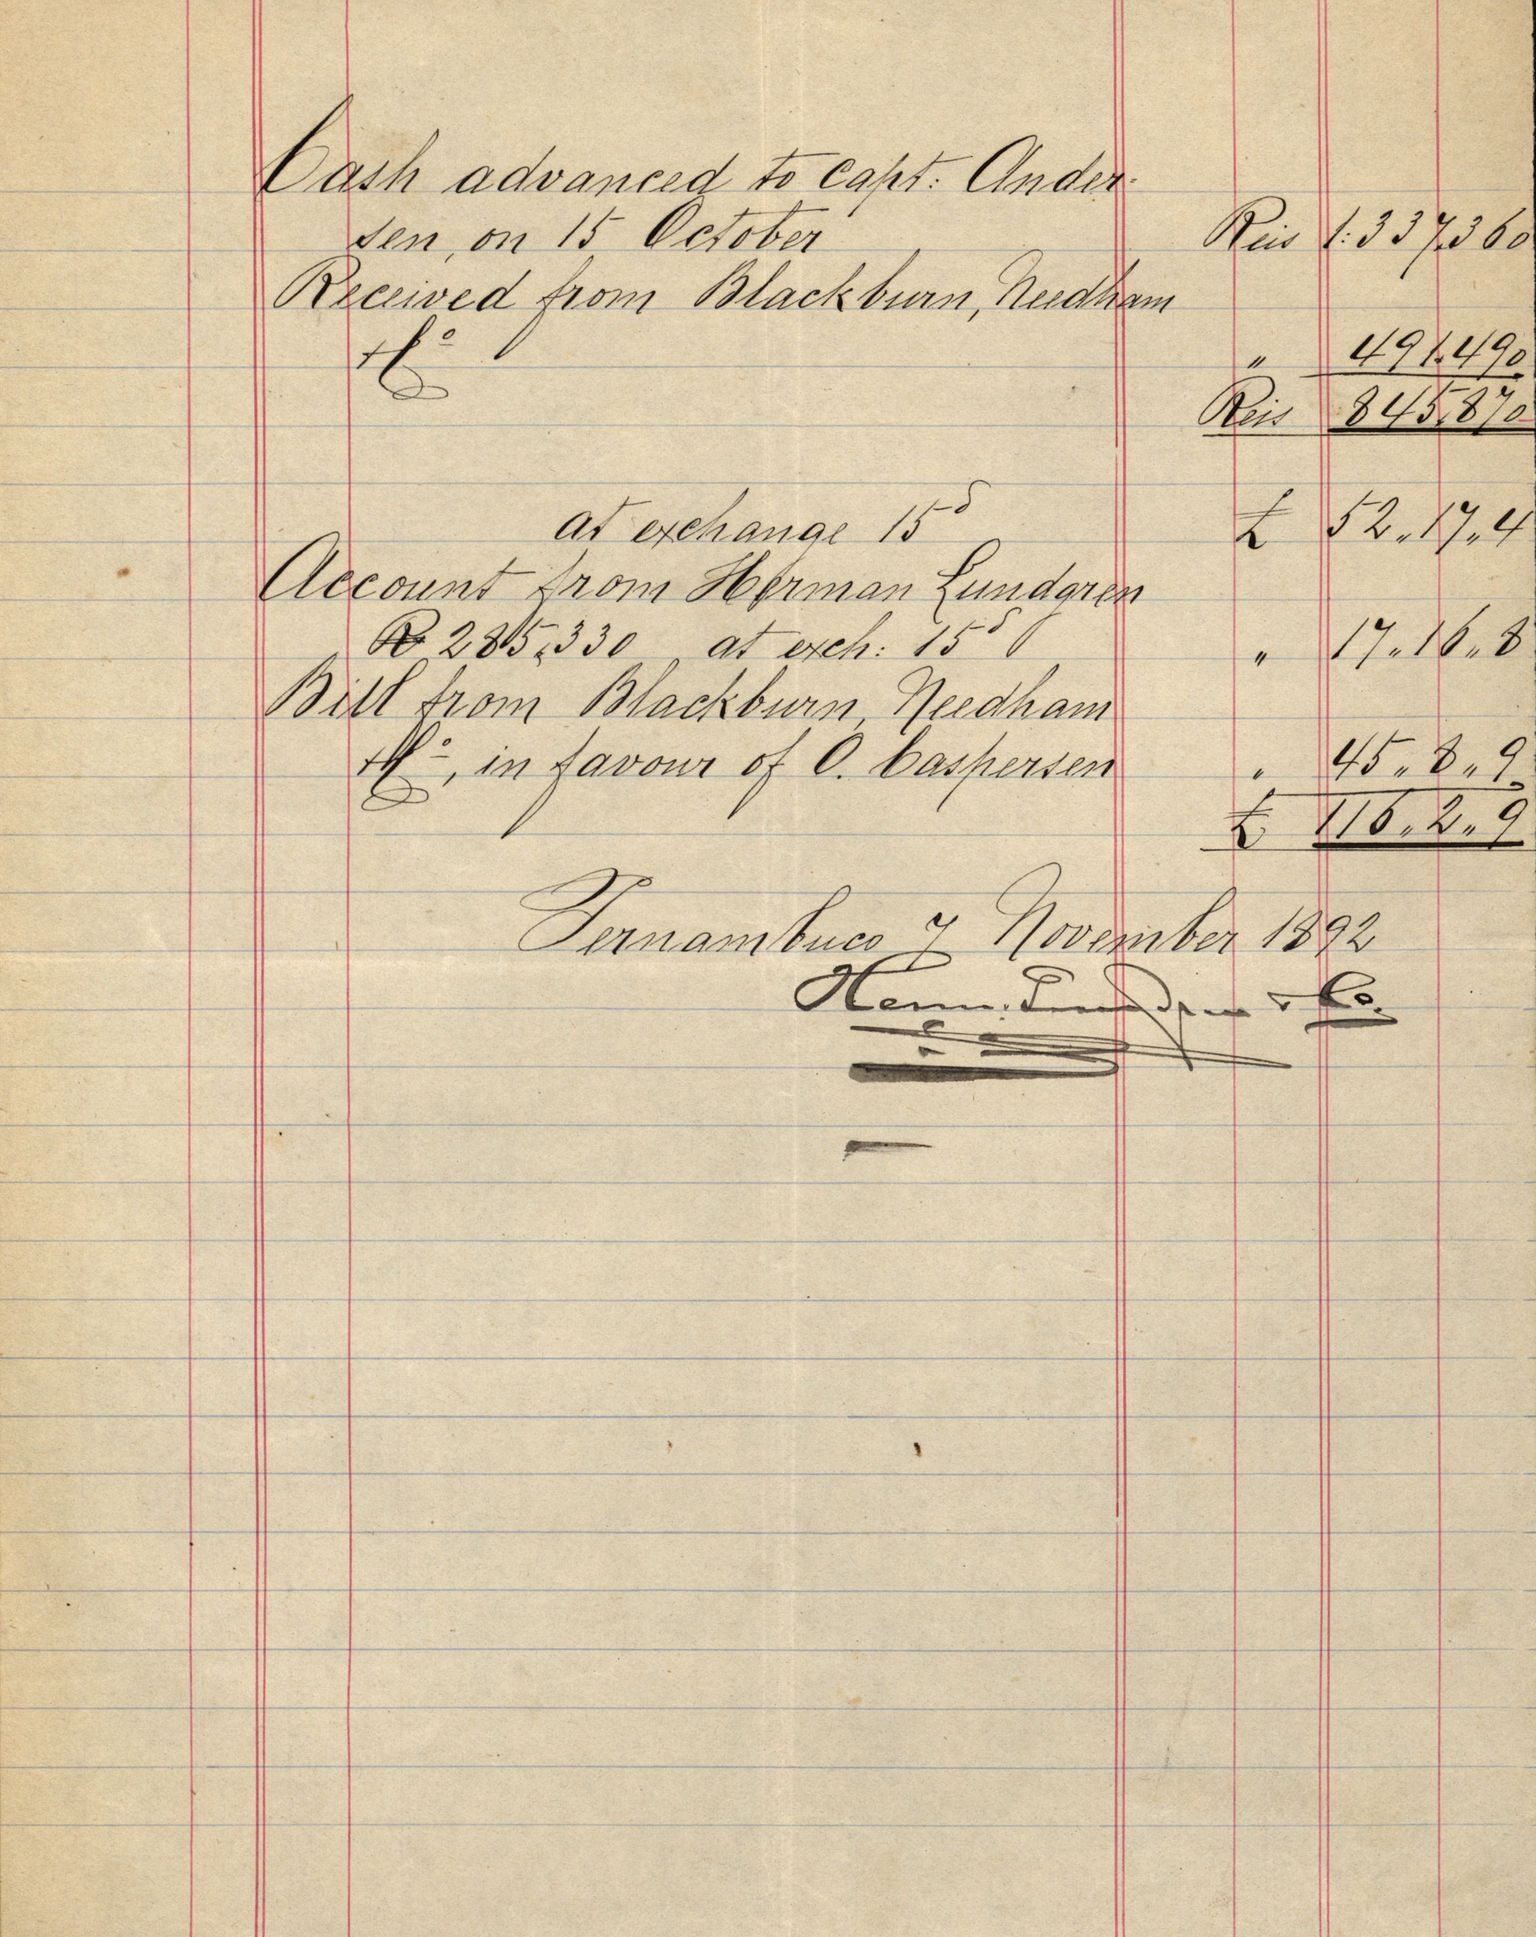 Cash advanced to Capt. Ander-
sen, on 15 October Reis 1.337.360
Received from Blackburn, Needham
& Co " 491.490
Reis 845.870
at exchange 15 d £ 52.17.4
Account from Herman Lundgren
Rs 285.330 at exch: 15 d " 17.16.8
Bill from Blackburn, Needham
& Co, in favour of O. Caspersen " 45.8.9
£ 116.2.9
Pernambuco 7 November 1892
Herm. Lundgren & Co.